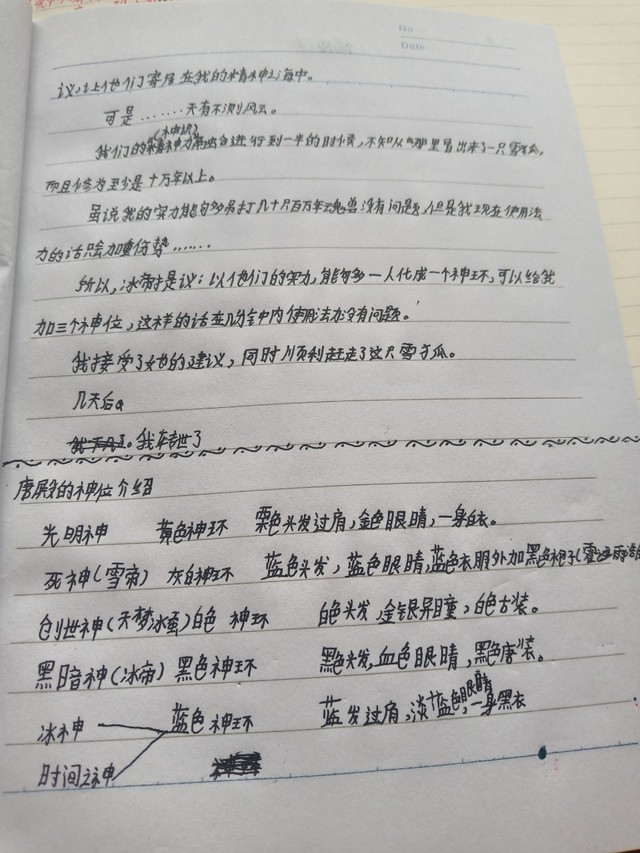 No
Date
议让他们寄居在我的精神之海中。
可是………天有不测风云。
(神识)
我们的精神力融合进行到一半的时候，不知从哪里冒出来了一只雪方瓜，
而且修为至少是十万年以上。
虽说我的实力能够吊打几十只百万年魂兽没有问题，但是我现在使用法
力的话只会加重伤势……
所以，冰帝提议：以他们的实力，能够每一人化成一个神环，可以给我
加三个神位，这样的话在几分钟内使用法力没有问题。
我接受了她的建议，同时顺利赶走了这只雪方瓜。
几天后。
我转世了
唐殿的神位介绍
光明神 黄色神环 栗色头发过肩，金色眼睛，一身白衣。
死神(雪帝) 灰白神环 蓝色头发，蓝色眼睛，蓝色衣服外加黑色袍子(霍
创世神(天梦冰蚕)白色 神环 白色头发，金银异瞳，白色古装。
黑暗神(冰帝) 黑色神环 黑色头发，血色眼睛，黑色唐装。
冰神 蓝色神环 蓝发过肩，淡蓝色眼睛，一身黑衣
时间之神